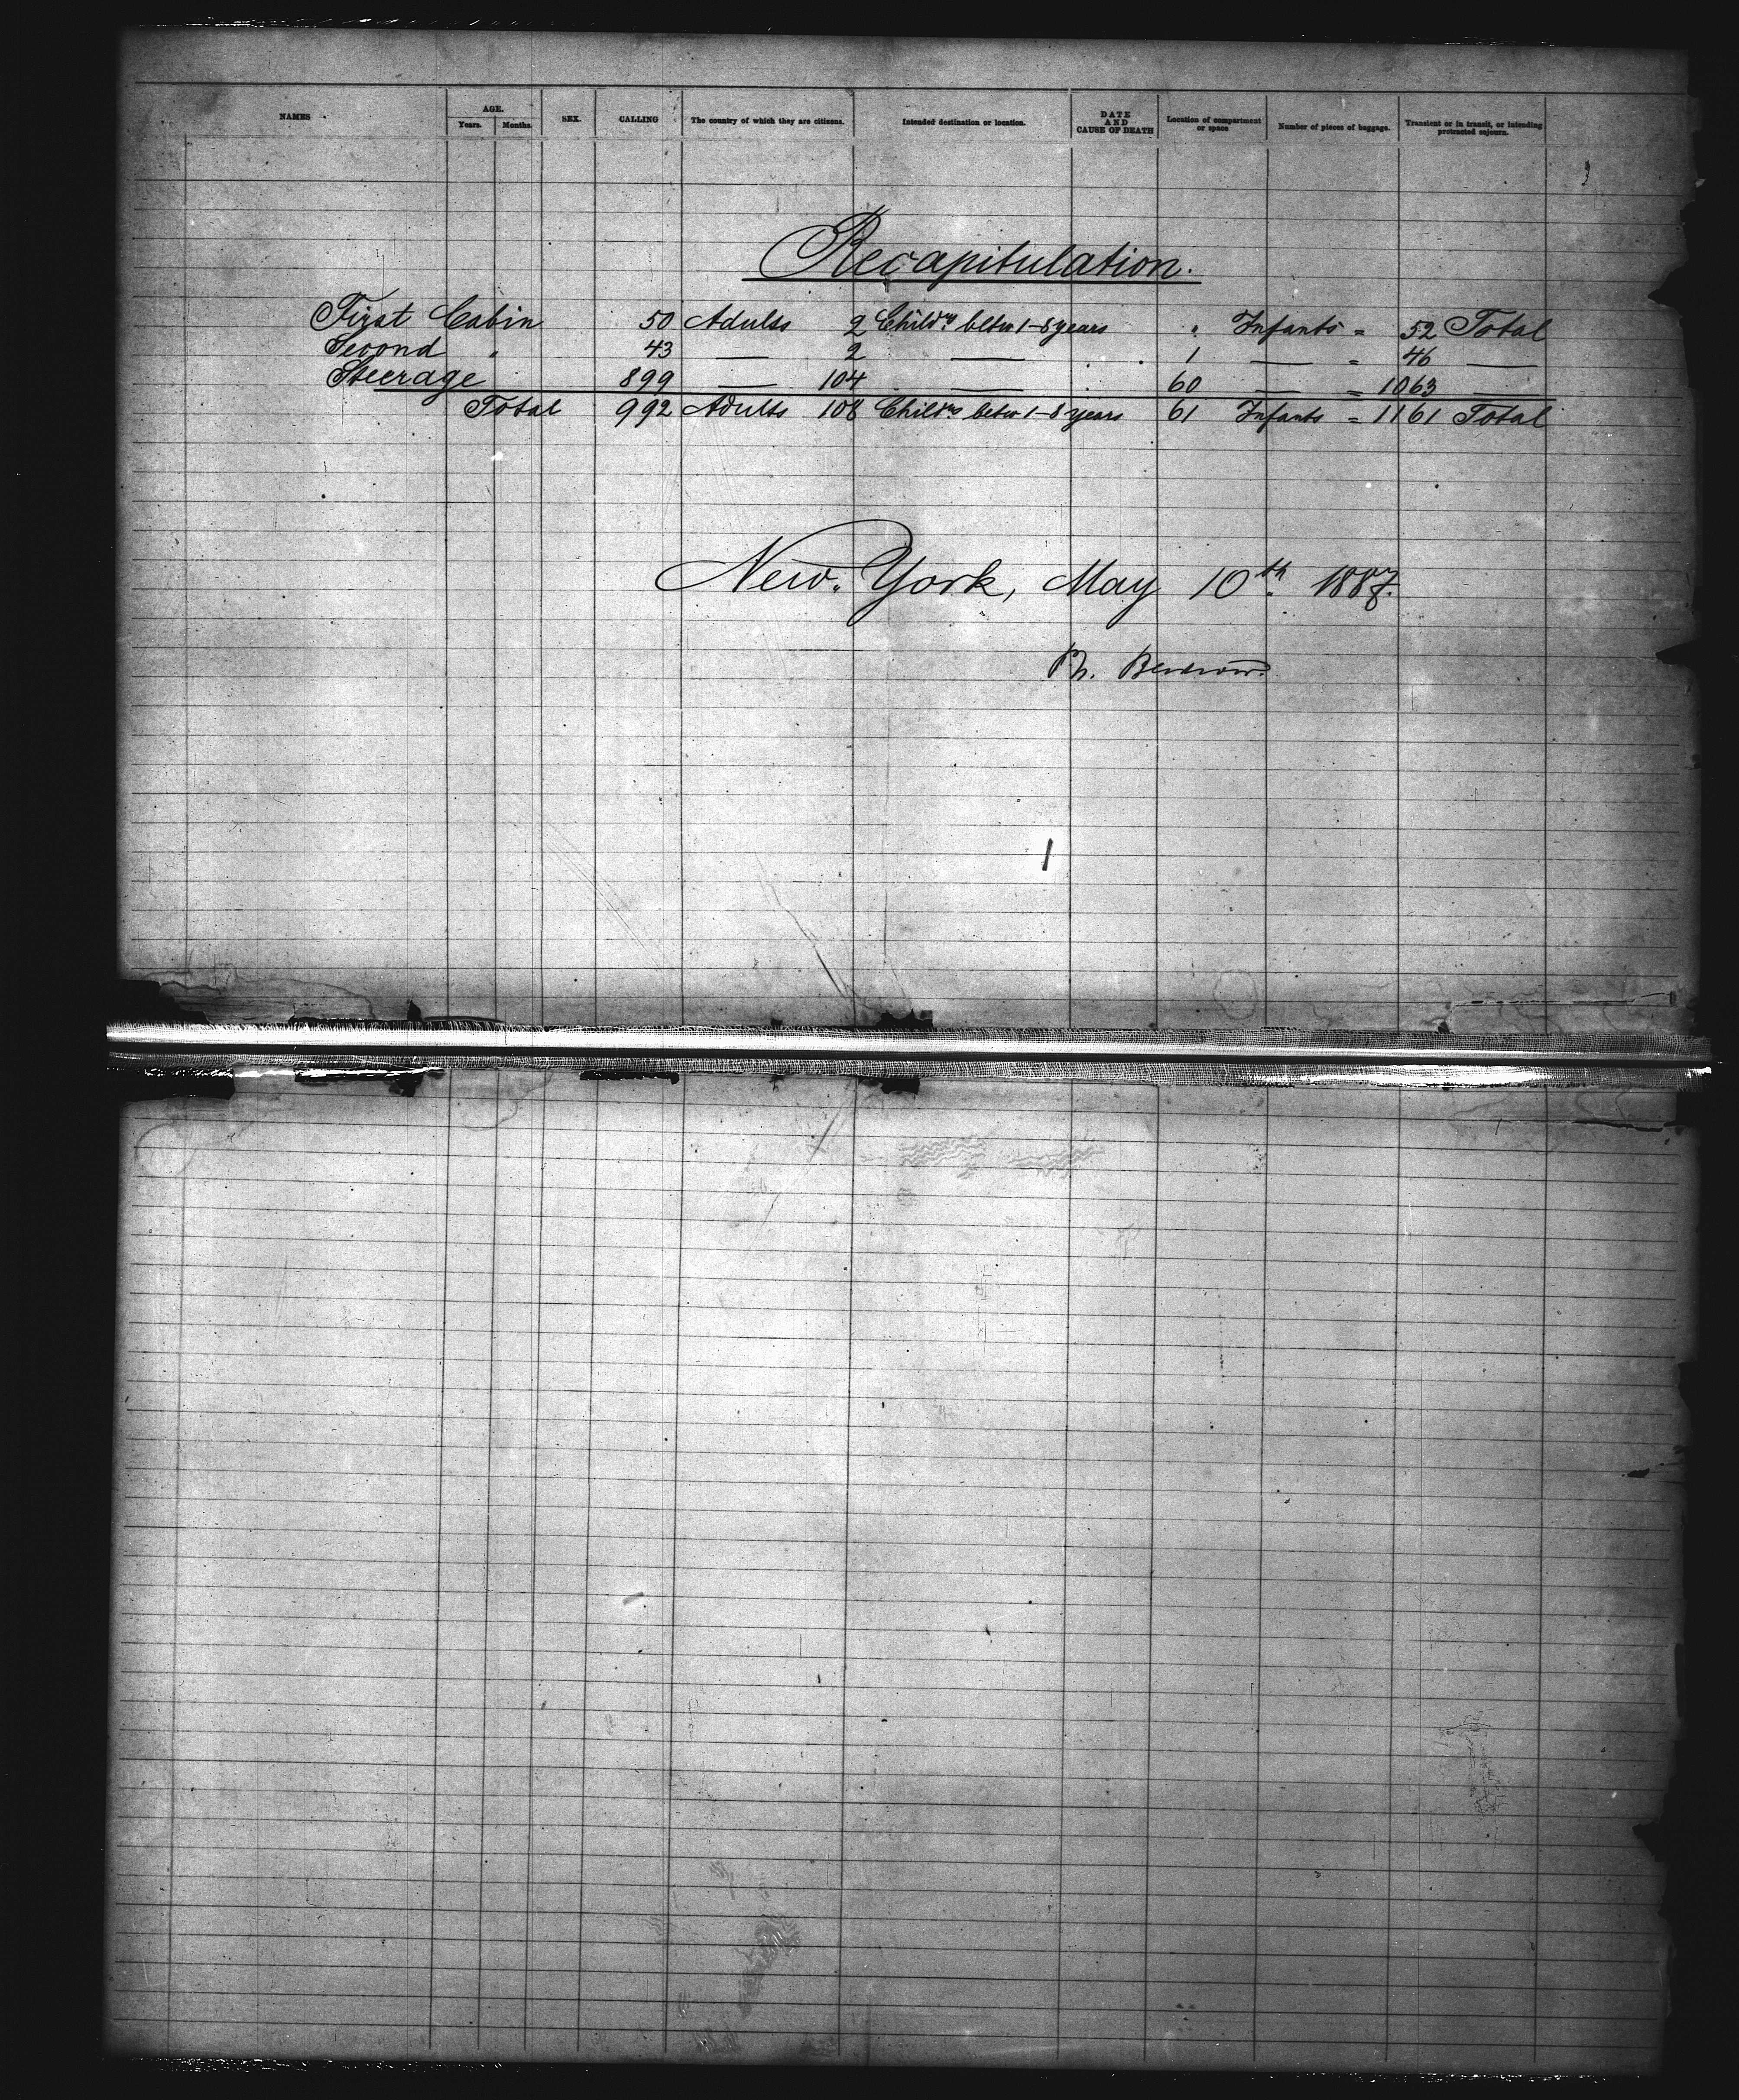 NAMES AGE. Years. Months. SEX. CALLING The country of which they are citizens. Intended destination or location. DATE AND CAUSE OF DEATH Location of compartment or space Number of pieces of baggage. Transient or in transit, or intending protracted sojourn.
Recapitulation.
First Cabin 50 Adults 2 Childrn betw 1-8 years " Infants = 52 Total
Second " 43 — 2 — 1 — = 46 —
Steerage 899 — 104 — 60 — = 1063 —
Total 992 Adults 108 Childrn betw 1-8 years 61 Infants = 1161 Total
New. York, May 10th. 1887.